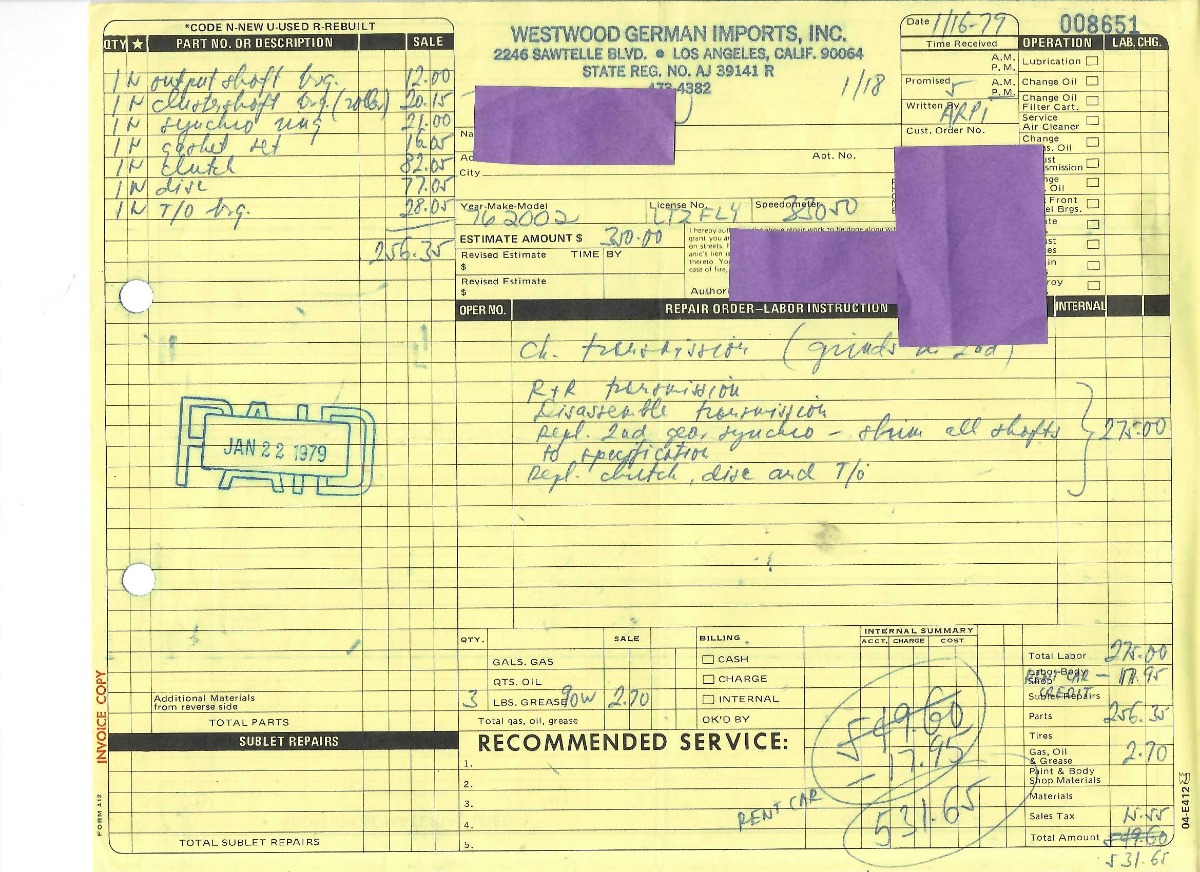 *CODE N-NEW U-USED R-REBUILT
QTY ★ PART NO. OR DESCRIPTION SALE
1 N output shaft brg. 12.00
1 N clustershaft brg. (roller) 20.15
1 N synchro ring 21.00
1 N gasket set 16.05
1 N clutch 82.05
1 N disc 77.05
1 N T/O brg. 28.05
256.35
WESTWOOD GERMAN IMPORTS, INC.
2246 SAWTELLE BLVD. • LOS ANGELES, CALIF. 90064
STATE REG. NO. AJ 39141 R
473-4382
1/18
Date 1/16-79
008651
Time Received
A.M.
P.M.
Promised 5 A.M.
P.M.
Written By ARPI
Cust. Order No.
Apt. No.
City
Year-Make-Model 76 2002
License No.
Speedometer 35050
ESTIMATE AMOUNT $ 350.00
Revised Estimate TIME BY
$
Revised Estimate
$
OPERATION LAB. CHG.
Lubrication
Change Oil
Change Oil
Filter Cart.
Service
Air Cleaner
Change
Oil
Front
INTERNAL
OPER NO. REPAIR ORDER—LABOR INSTRUCTION
Ch. transmission (grinds in 2nd)
R+R transmission
Disassemble transmission
Repl. 2nd gear synchro - shim all shafts 275.00
to specification
Repl. clutch, disc and T/o
PAID
JAN 22 1979
QTY. SALE
GALS. GAS
QTS. OIL
3 LBS. GREASE 90W 2.70
Total gas, oil, grease
BILLING
CASH
CHARGE
INTERNAL
OK'D BY
INTERNAL SUMMARY
ACCT. CHARGE COST
549.60
- 17.95
RENT CAR
531.65
Additional Materials
from reverse side
TOTAL PARTS
SUBLET REPAIRS
TOTAL SUBLET REPAIRS
RECOMMENDED SERVICE:
1.
2.
3.
4.
5.
Total Labor 275.00
Labor-Body
Shop
RENT CAR - 17.95
CREDIT
Sublet Repairs
Parts 256.35
Tires
Gas, Oil
& Grease 2.70
Paint & Body
Shop Materials
Materials
Sales Tax 15.55
Total Amount 549.60
531.65
INVOICE COPY
FORM 412
04-E412